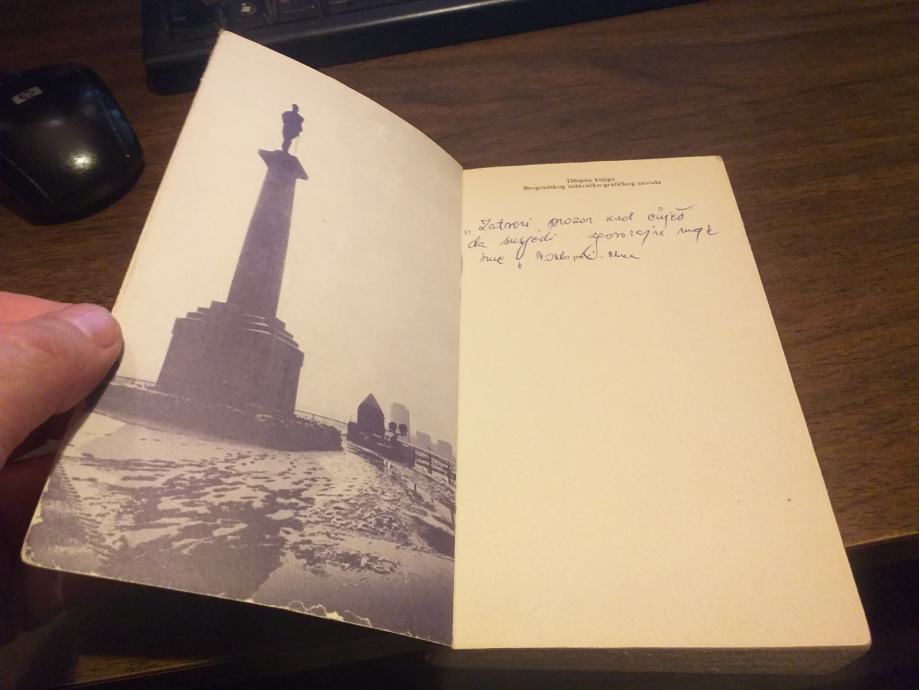 hp
Džepna knjiga
Beogradskog izdavačko-grafičkog zavoda
„Zatvori prozor kad čuješ
da susjedi izgovaraju moje
ime"